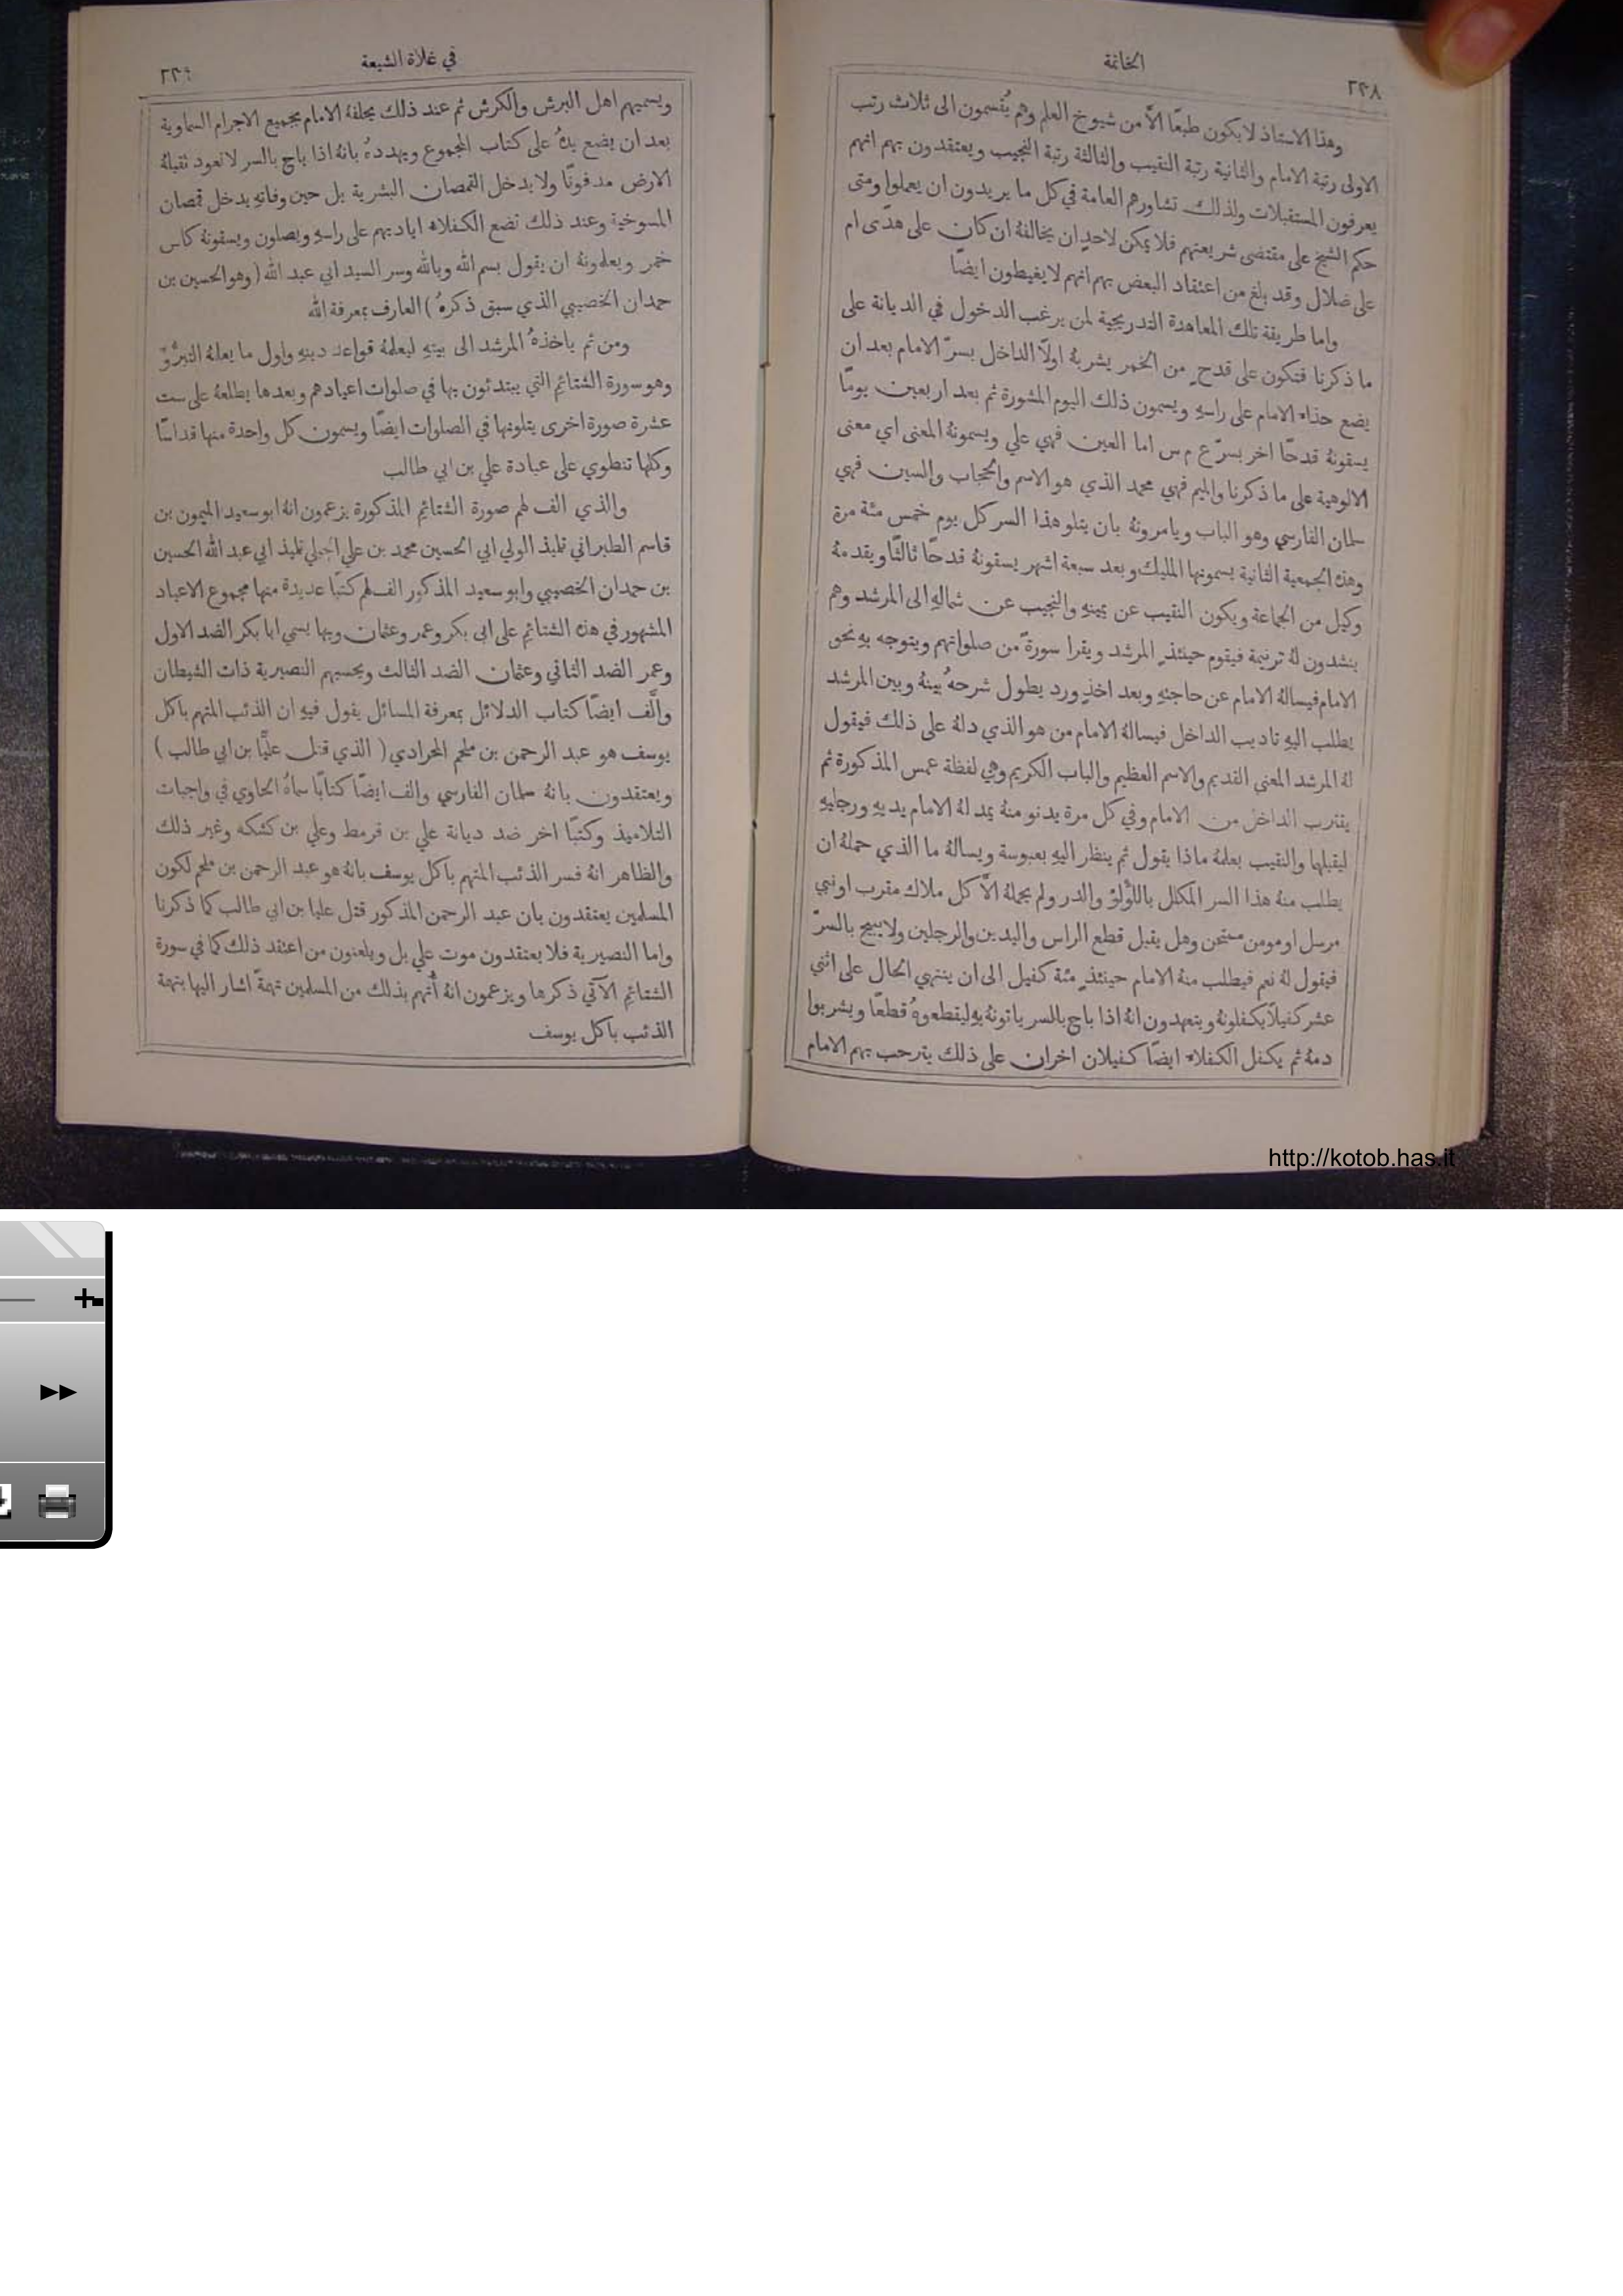 الخاتمة
٢٣٨
وهذا الاستاذ لا يكون طبعًا الَّا من شيوخ العلم وهم يُقسمون الى ثلاث رتب
الاولى رتبة الامام والثانية رتبة النقيب والثالثة رتبة النجيب ويعتقدون بهم انهم
يعرفون المستقبلات ولذلك تشاورهم العامة في كل ما يريدون ان يعملوا ومتى
حكم الشيخ على مقتضى شريعتهم فلا يمكن لاحدٍ ان يخالفهُ ان كان على هدًى ام
على ضلال وقد بلغ من اعتقاد البعض بهم انهم لا يغيطون ايضًا
واما طريقة تلك المعاهدة التدريجية لمن يرغب الدخول في الديانة على
ما ذكرنا فتكون على قدحٍ من الخمر يشربهُ اولًا الداخل بسرّ الامام بعد ان
يضع حذاء الامام على راسهِ ويسمون ذلك اليوم المشورة ثم بعد اربعين يومًا
يسقونهُ قدحًا اخر بسرّ ع م س اما العين فهي علي ويسمونهُ المعنى اي معنى
الالوهية على ما ذكرنا والميم فهي محمد الذي هو الاسم والحجاب والسين فهي
سلمان الفارسي وهو الباب ويامرونهُ بان يتلو هذا السر كل يوم خمس مئة مرة
وهذه الجمعية الثانية يسمونها المليك وبعد سبعة اشهر يسقونهُ قدحًا ثالثًا ويقدمهُ
وكيل من الجماعة ويكون النقيب عن يمينهِ والنجيب عن شمالهِ الى المرشد وهم
ينشدون لهُ ترنيمة فيقوم حينئذٍ المرشد ويقرا سورةً من صلواتهم ويتوجه بهِ نحو
الامام فيسالهُ الامام عن حاجتهِ وبعد اخذٍ ورد يطول شرحهُ بينهُ وبين المرشد
يطلب اليهِ تاديب الداخل فيسالهُ الامام من هو الذي دلهُ على ذلك فيقول
لهُ المرشد المعنى القديم والاسم العظيم والباب الكريم وهي لفظة عمس المذكورة ثم
يقترب الداخل من الامام وفي كل مرة يدنو منهُ يمد لهُ الامام يديهِ ورجليهِ
ليقبلها والنقيب يعلمهُ ماذا يقول ثم ينظر اليهِ بعبوسة ويسالهُ ما الذي حملهُ ان
يطلب منهُ هذا السر المكلل باللؤلؤ والدر ولم يحملهُ الَّا كل ملاك مقرب او نبي
مرسل او مومن ممتحن وهل يقبل قطع الراس واليدين والرجلين ولا يبيح بالسرّ
فيقول لهُ نعم فيطلب منهُ الامام حينئذٍ مئة كفيل الى ان ينتهي الحال على اثني
عشر كفيلًا يكفلونهُ ويتعهدون انهُ اذا باح بالسر ياتونهُ بهِ ليقطعوهُ قطعًا ويشربوا
دمهُ ثم يكفل الكفلاء ايضًا كفيلان اخران على ذلك يترحب بهم الامام
في غلاة الشيعة
ويسميهم اهل البرش والكرش ثم عند ذلك يحلفهُ الامام بجميع الاجرام السماوية
بعد ان يضع يدهُ على كتاب المجموع ويهددهُ بانهُ اذا باح بالسر لا تعود تقبلهُ
الارض مدفونًا ولا يدخل القمصان البشرية بل حين وفاتهِ يدخل قمصان
المسوخية وعند ذلك تضع الكفلاء اياديهم على راسهِ ويصلون ويسقونهُ كاس
خمر ويعلمونهُ ان يقول بسم الله وبالله وسر السيد ابي عبد الله (وهو الحسين بن
حمدان الخصيبي الذي سبق ذكرهُ) العارف بمعرفة الله
ومن ثم ياخذهُ المرشد الى بيتهِ ليعلمهُ قواعد دينهِ واول ما يعلمهُ التبرُّوَ
وهو سورة الشتائم التي يبتدئون بها في صلوات اعيادهم وبعدها يطلعهُ على ست
عشرة صورة اخرى يتلونها في الصلوات ايضًا ويسمون كل واحدة منها قداسًا
وكلها تنطوي على عبادة علي بن ابي طالب
والذي الف لهم صورة الشتائم المذكورة يزعمون انهُ ابو سعيد الميمون بن
قاسم الطبراني تلميذ الولي ابي الحسين محمد بن علي الجلي تلميذ ابي عبد الله الحسين
بن حمدان الخصيبي وابو سعيد المذكور الف لهم كتبًا عديدة منها مجموع الاعياد
المشهور في هذه الشتائم على ابي بكر وعمر وعثمان وبها يسمي ابا بكر الضد الاول
وعمر الضد الثاني وعثمان الضد الثالث ويحسبهم النصيرية ذات الشيطان
والَّف ايضًا كتاب الدلائل بمعرفة المسائل يقول فيهِ ان الذئب المتهم باكل
يوسف هو عبد الرحمن بن ملجم المرادي (الذي قتل عليًّا بن ابي طالب)
ويعتقدون بانهُ سلمان الفارسي والف ايضًا كتابًا سماهُ الحاوي في واجبات
التلاميذ وكتبًا اخر ضد ديانة علي بن قرمط وعلي بن كشكه وغير ذلك
والظاهر انهُ فسر الذئب المتهم باكل يوسف بانهُ هو عبد الرحمن بن ملجم لكون
المسلمين يعتقدون بان عبد الرحمن المذكور قتل عليا بن ابي طالب كما ذكرنا
واما النصيرية فلا يعتقدون موت علي بل ويلعنون من اعتقد ذلك كما في سورة
الشتائم الآتي ذكرها ويزعمون انهُ أُتهم بذلك من المسلمين تهمةً اشار اليها بتهمة
الذئب باكل يوسف
http://kotob.has.it